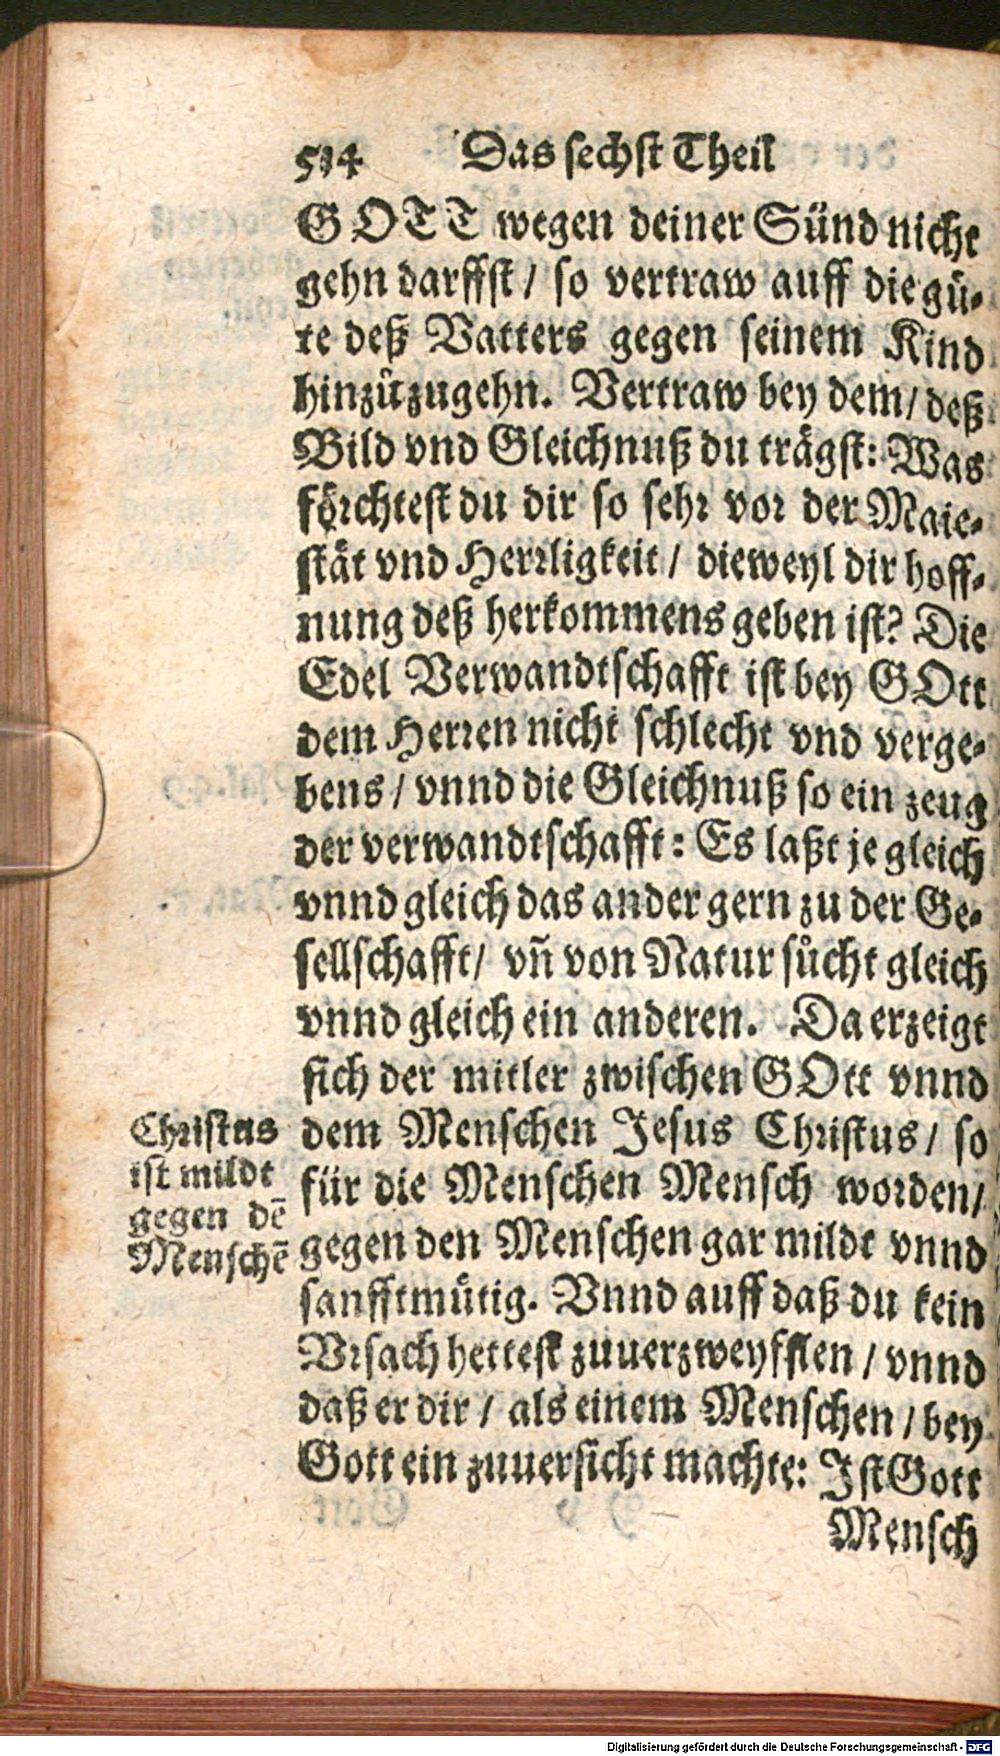 514 Das sechst Theil
GOTT wegen deiner Sünd nicht
gehn darffst / so vertraw auff die gü-
te deß Vatters gegen seinem Kind
hinzůzugehn. Vertraw bey dem / deß
Bild vnd Gleichnuß du trägst: Was
förchtest du dir so sehr vor der Maie-
stät vnd Herrligkeit / dieweyl dir hoff-
nung deß herkommens geben ist? Die
Edel Verwandtschafft ist bey GOtt
dem Herren nicht schlecht vnd verge-
bens / vnnd die Gleichnuß so ein zeug
der verwandtschafft: Es laßt je gleich
vnnd gleich das ander gern zu der Ge-
sellschafft / vñ von Natur sůcht gleich
vnnd gleich ein anderen. Da erzeigt
sich der mitler zwischen GOtt vnnd
dem Menschen Jesus Christus / so
für die Menschen Mensch worden /
gegen den Menschen gar mildt vnnd
sanfftmütig. Vnnd auff daß du kein
Vrsach hettest zuuerzweyfflen / vnnd
daß er dir / als einem Menschen / bey
Gott ein zuuersicht machte: Ist Gott
Mensch
Christus
ist mildt
gegen dē
Menschē
Digitalisierung gefördert durch die Deutsche Forschungsgemeinschaft - DFG